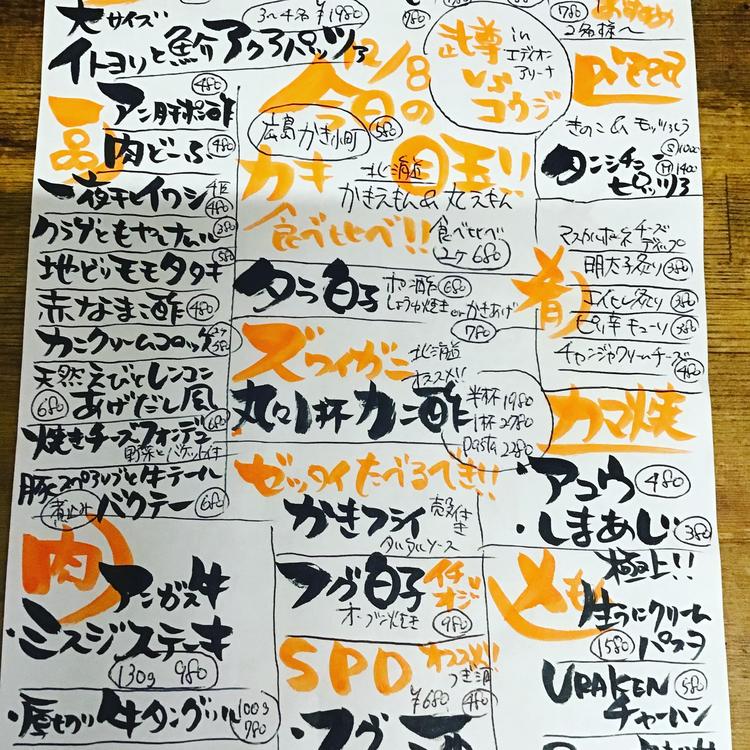 大サイズ
3〜4名 ¥1980
イトヨリと鮒アクアパッツァ
一品
アン肝ポン酢
480
肉どーふ
480
一夜干しイワシ
480
クラゲともやしナムル
380
地どりモモタタキ
580
赤なまこ酢
480
カニクリームコロッケ
580
天然えびとレンコン
あげだし風
680
焼きチーズフォンデュ
野菜とバケット付
豚スペアリブと牛テール
煮込み
バクテー
680
肉
アンガス牛
・ミスジステーキ
130g 980
・厚切り牛タングリル
100g
780
12/8
今日の
目玉!!
広島 かき小町
580
カキ
北海道
かきえもん&丸えもん
食べ比べ!!
食べ比べ
2ケ 680
タラ白子
ポン酢 680
しょうゆ焼き or かきあげ
780
ズワイガニ
北海道
オススメ!!
丸ごと1杯カニ酢
半杯 1980
1杯 2780
pasta 2280
ゼッタイたべるべき!!
かきフライ
殻付き
タルタルソース
フグ白子
イチオシ
オーブン焼き
980
SPD
オススメ!!
つぎ酒
¥680
480
フグ
in
エディオン
アリーナ
vs
コウジ
780
おすすめ
2名様〜
Pizza
きのこ&モッツァ
S 1000
M 1400
タンシチュー
ピッツァ
肴
マスカルポーネチーズ
ディップ
明太子炙り 380
エイヒレ炙り 380
ピリ辛キューリ 380
チャンジャクリームチーズ
480
カマ焼
・アコウ
480
・しまあじ
380
〆もん
極上!!
生うにクリーム
パスタ
1580
URAKEN
チャーハン
580